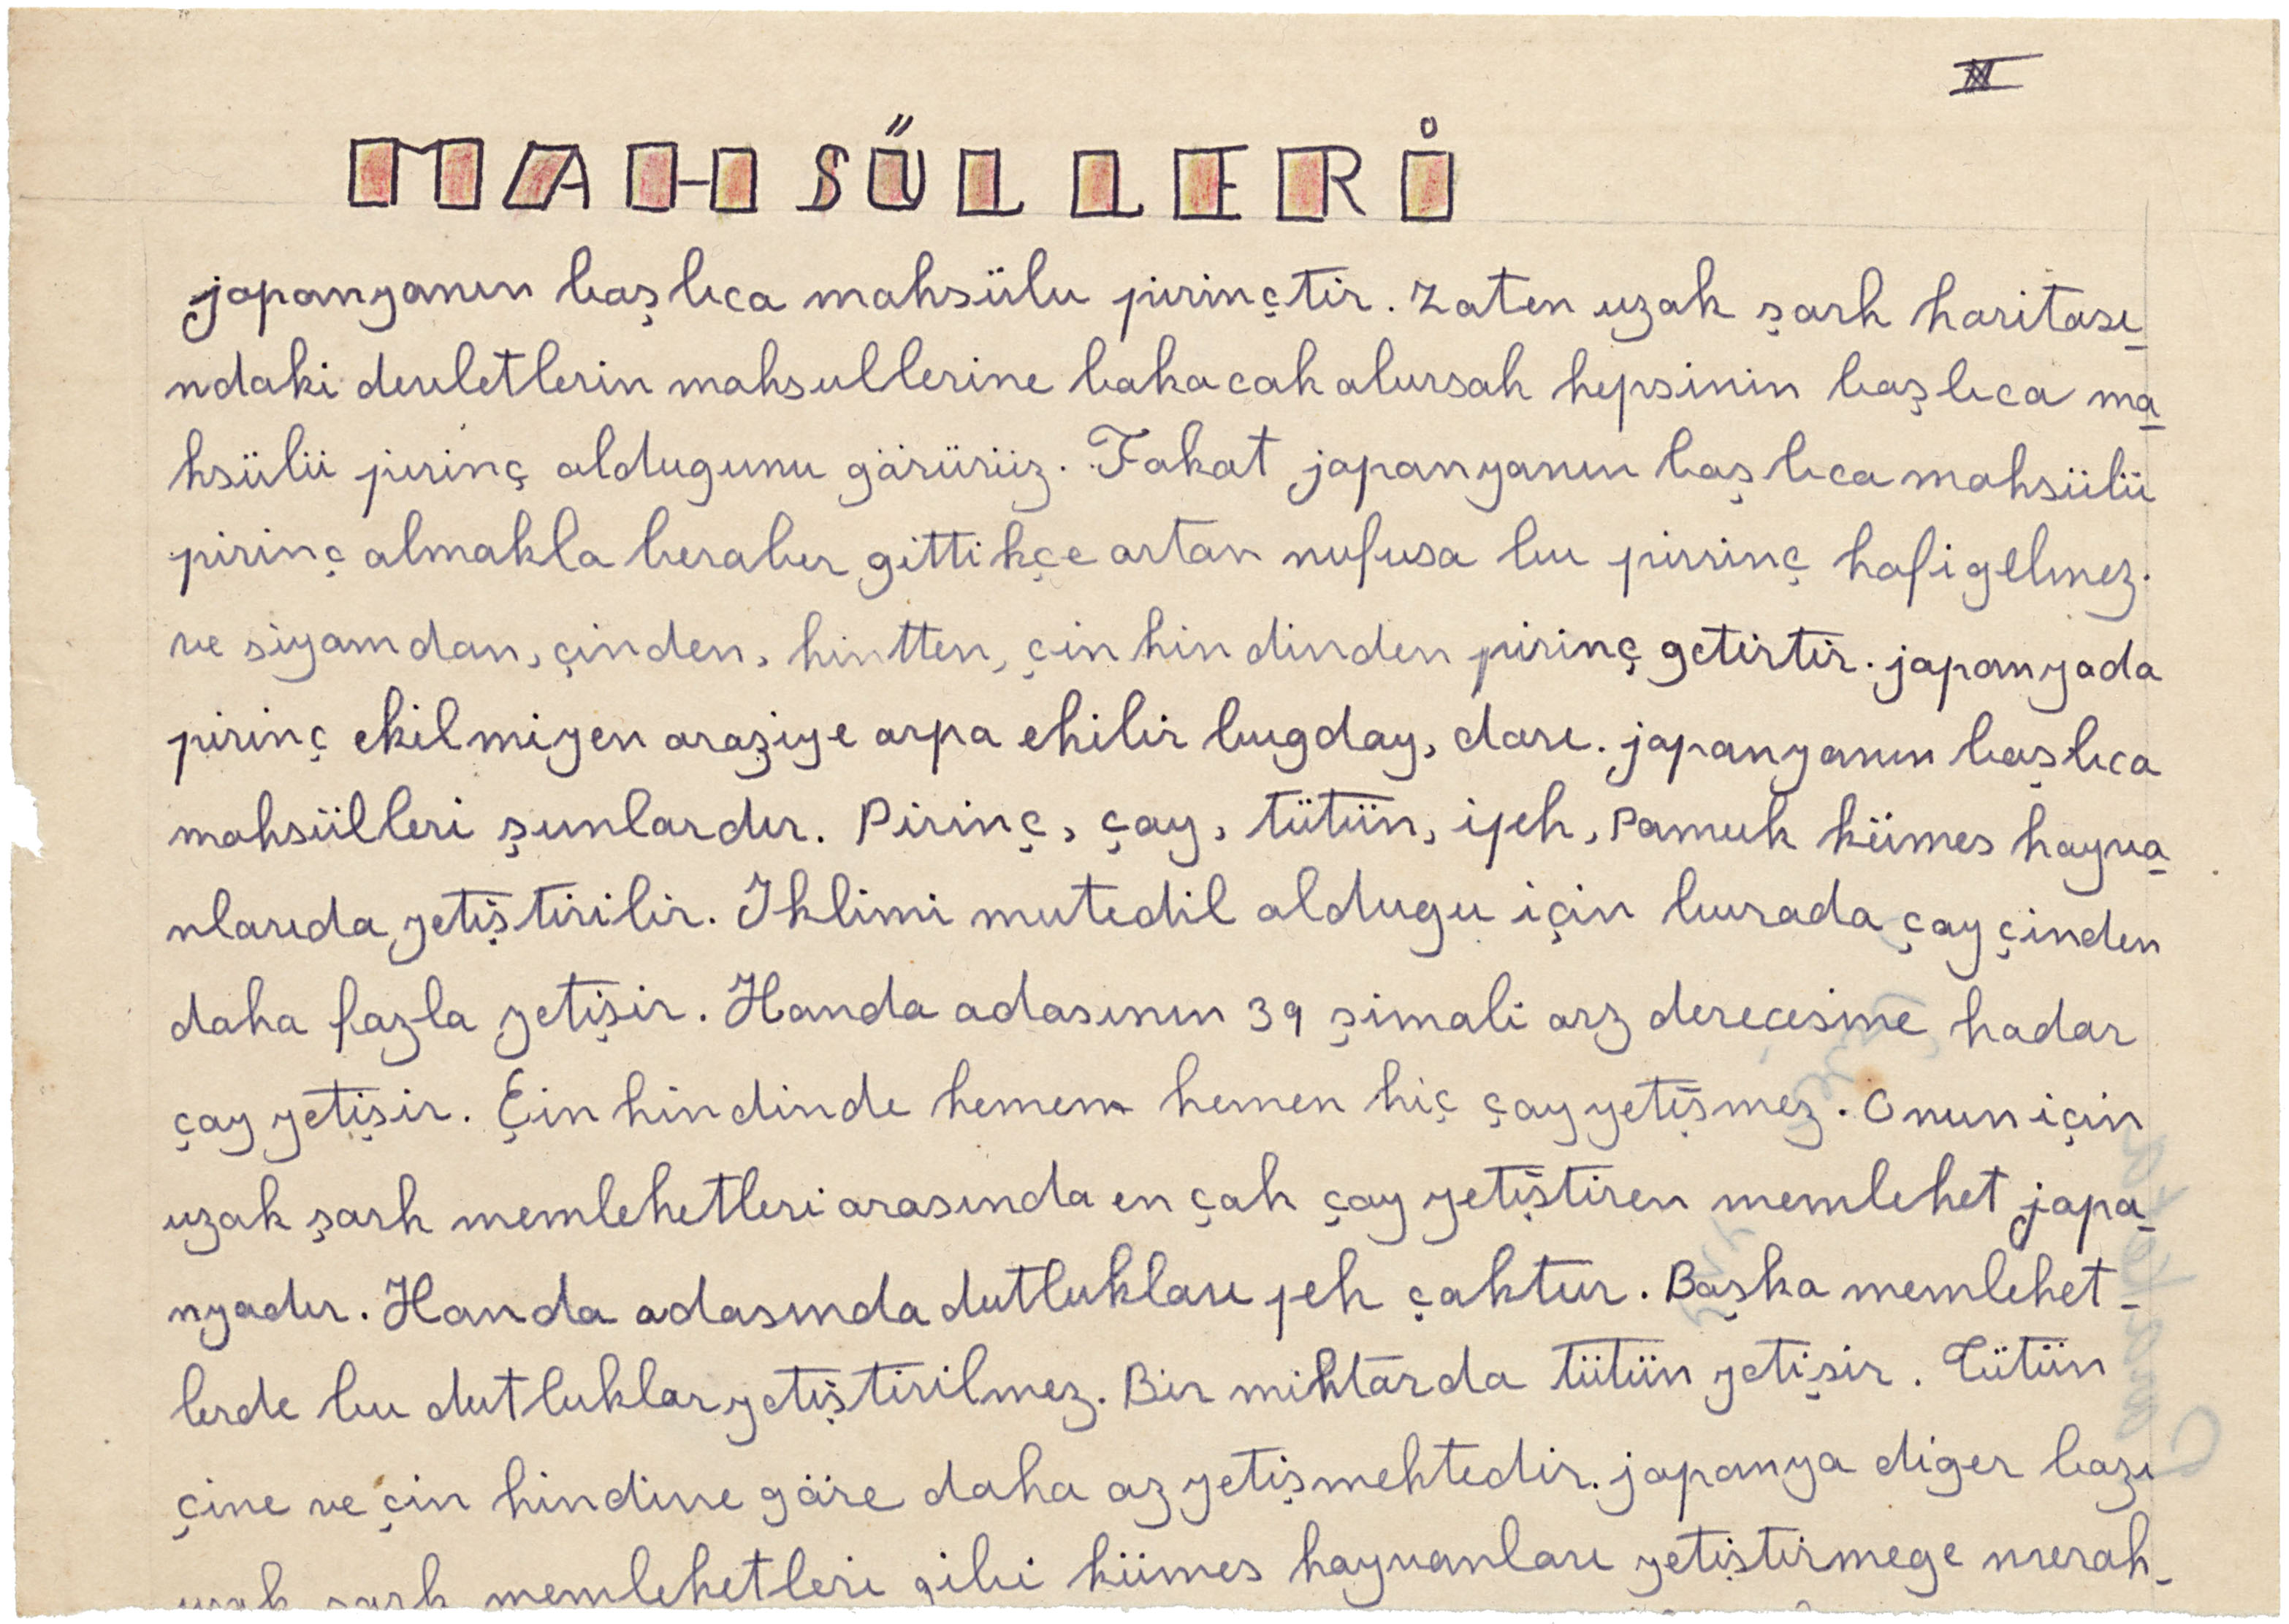 MAHSÜLLERİ
japonyanın başlıca mahsülu pirinçtir. Zaten uzak şark haritası
ndaki devletlerin mahsullerine bakacak olursak hepsinin başlıca ma
hsülü pirinç oldugunu görürüz. Fakat japonyanın başlıca mahsülü
pirinç olmakla beraber gittikçe artan nufusa bu pirinç kafi gelmez.
ve siyamdan, çinden, hintten, çin hindinden pirinç getirtir. japonyada
pirinç ekilmiyen araziye arpa ekilir bugday, darı. japonyanın başlıca
mahsülleri şunlardır. Pirinç, çay, tütün, ipek, Pamuk kümes hayva
nlarıda yetiştirilir. Iklimi mutedil oldugu için burada çay çinden
daha fazla yetişir. Hondo adasının 39 şimali arz derecesine kadar
çay yetişir. Çin hindinde hemem hemen hiç çay yetişmez. Onun için
uzak şark memleketleri arasında en çok çay yetiştiren memleket japo
nyadır. Hondo adasında dutlukları pek çoktur. Başka memleket-
lerde bu dutluklar yetiştirilmez. Bir miktarda tütün yetişir. Tütün
çine ve çin hindine göre daha az yetişmektedir. japonya diger bazı
uzak şark memleketleri gibi kümes hayvanları yetiştirmege merak-